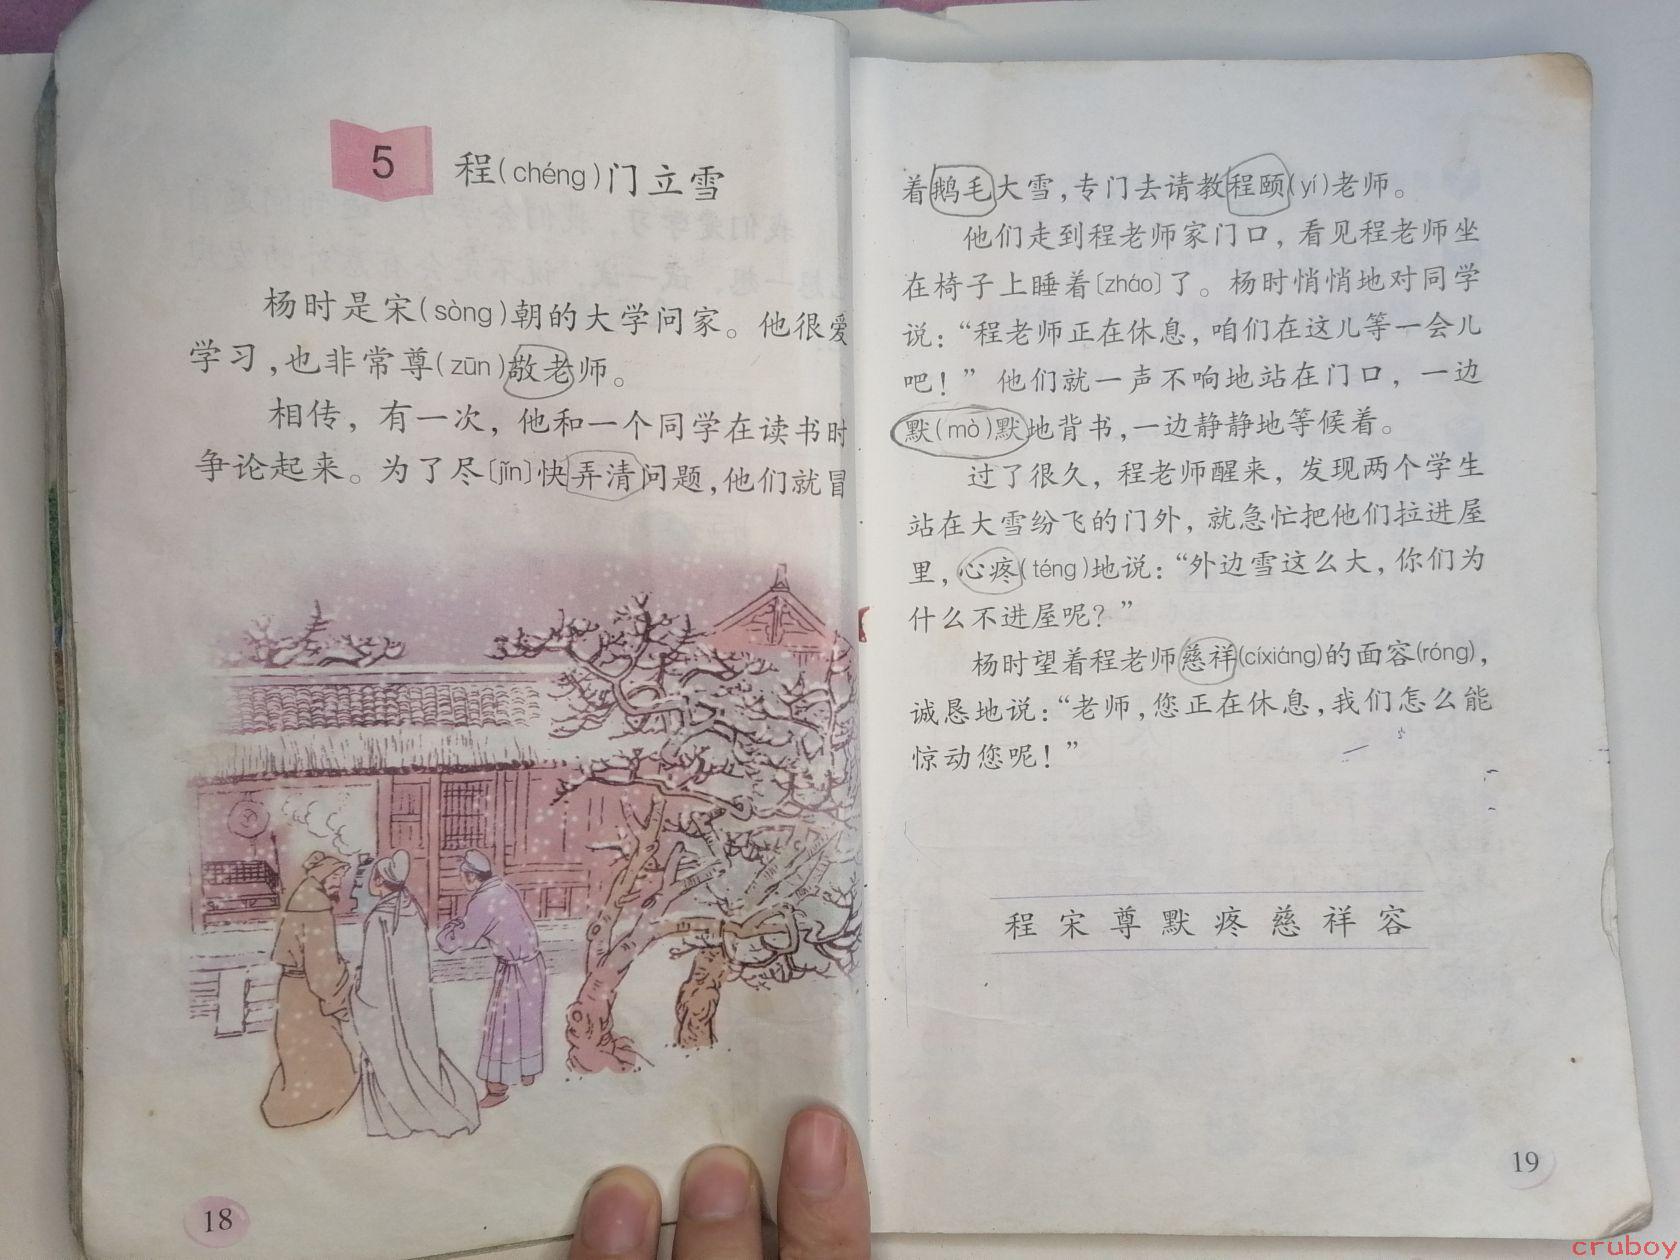 5 程(chéng)门立雪
杨时是宋(sòng)朝的大学问家。他很爱
学习,也非常尊(zūn)敬老师。
相传，有一次，他和一个同学在读书时
争论起来。为了尽〔jǐn〕快弄清问题,他们就冒
18
着鹅毛大雪,专门去请教程颐(yí)老师。
他们走到程老师家门口，看见程老师坐
在椅子上睡着〔zháo〕了。杨时悄悄地对同学
说:“程老师正在休息，咱们在这儿等一会儿
吧！”他们就一声不响地站在门口，一边
默(mò)默地背书,一边静静地等候着。
过了很久，程老师醒来，发现两个学生
站在大雪纷飞的门外，就急忙把他们拉进屋
里,心疼(téng)地说:“外边雪这么大,你们为
什么不进屋呢？”
杨时望着程老师慈祥(cíxiáng)的面容(róng),
诚恳地说:“老师,您正在休息,我们怎么能
惊动您呢！”
程 宋 尊 默 疼 慈 祥 容
19
cruboy